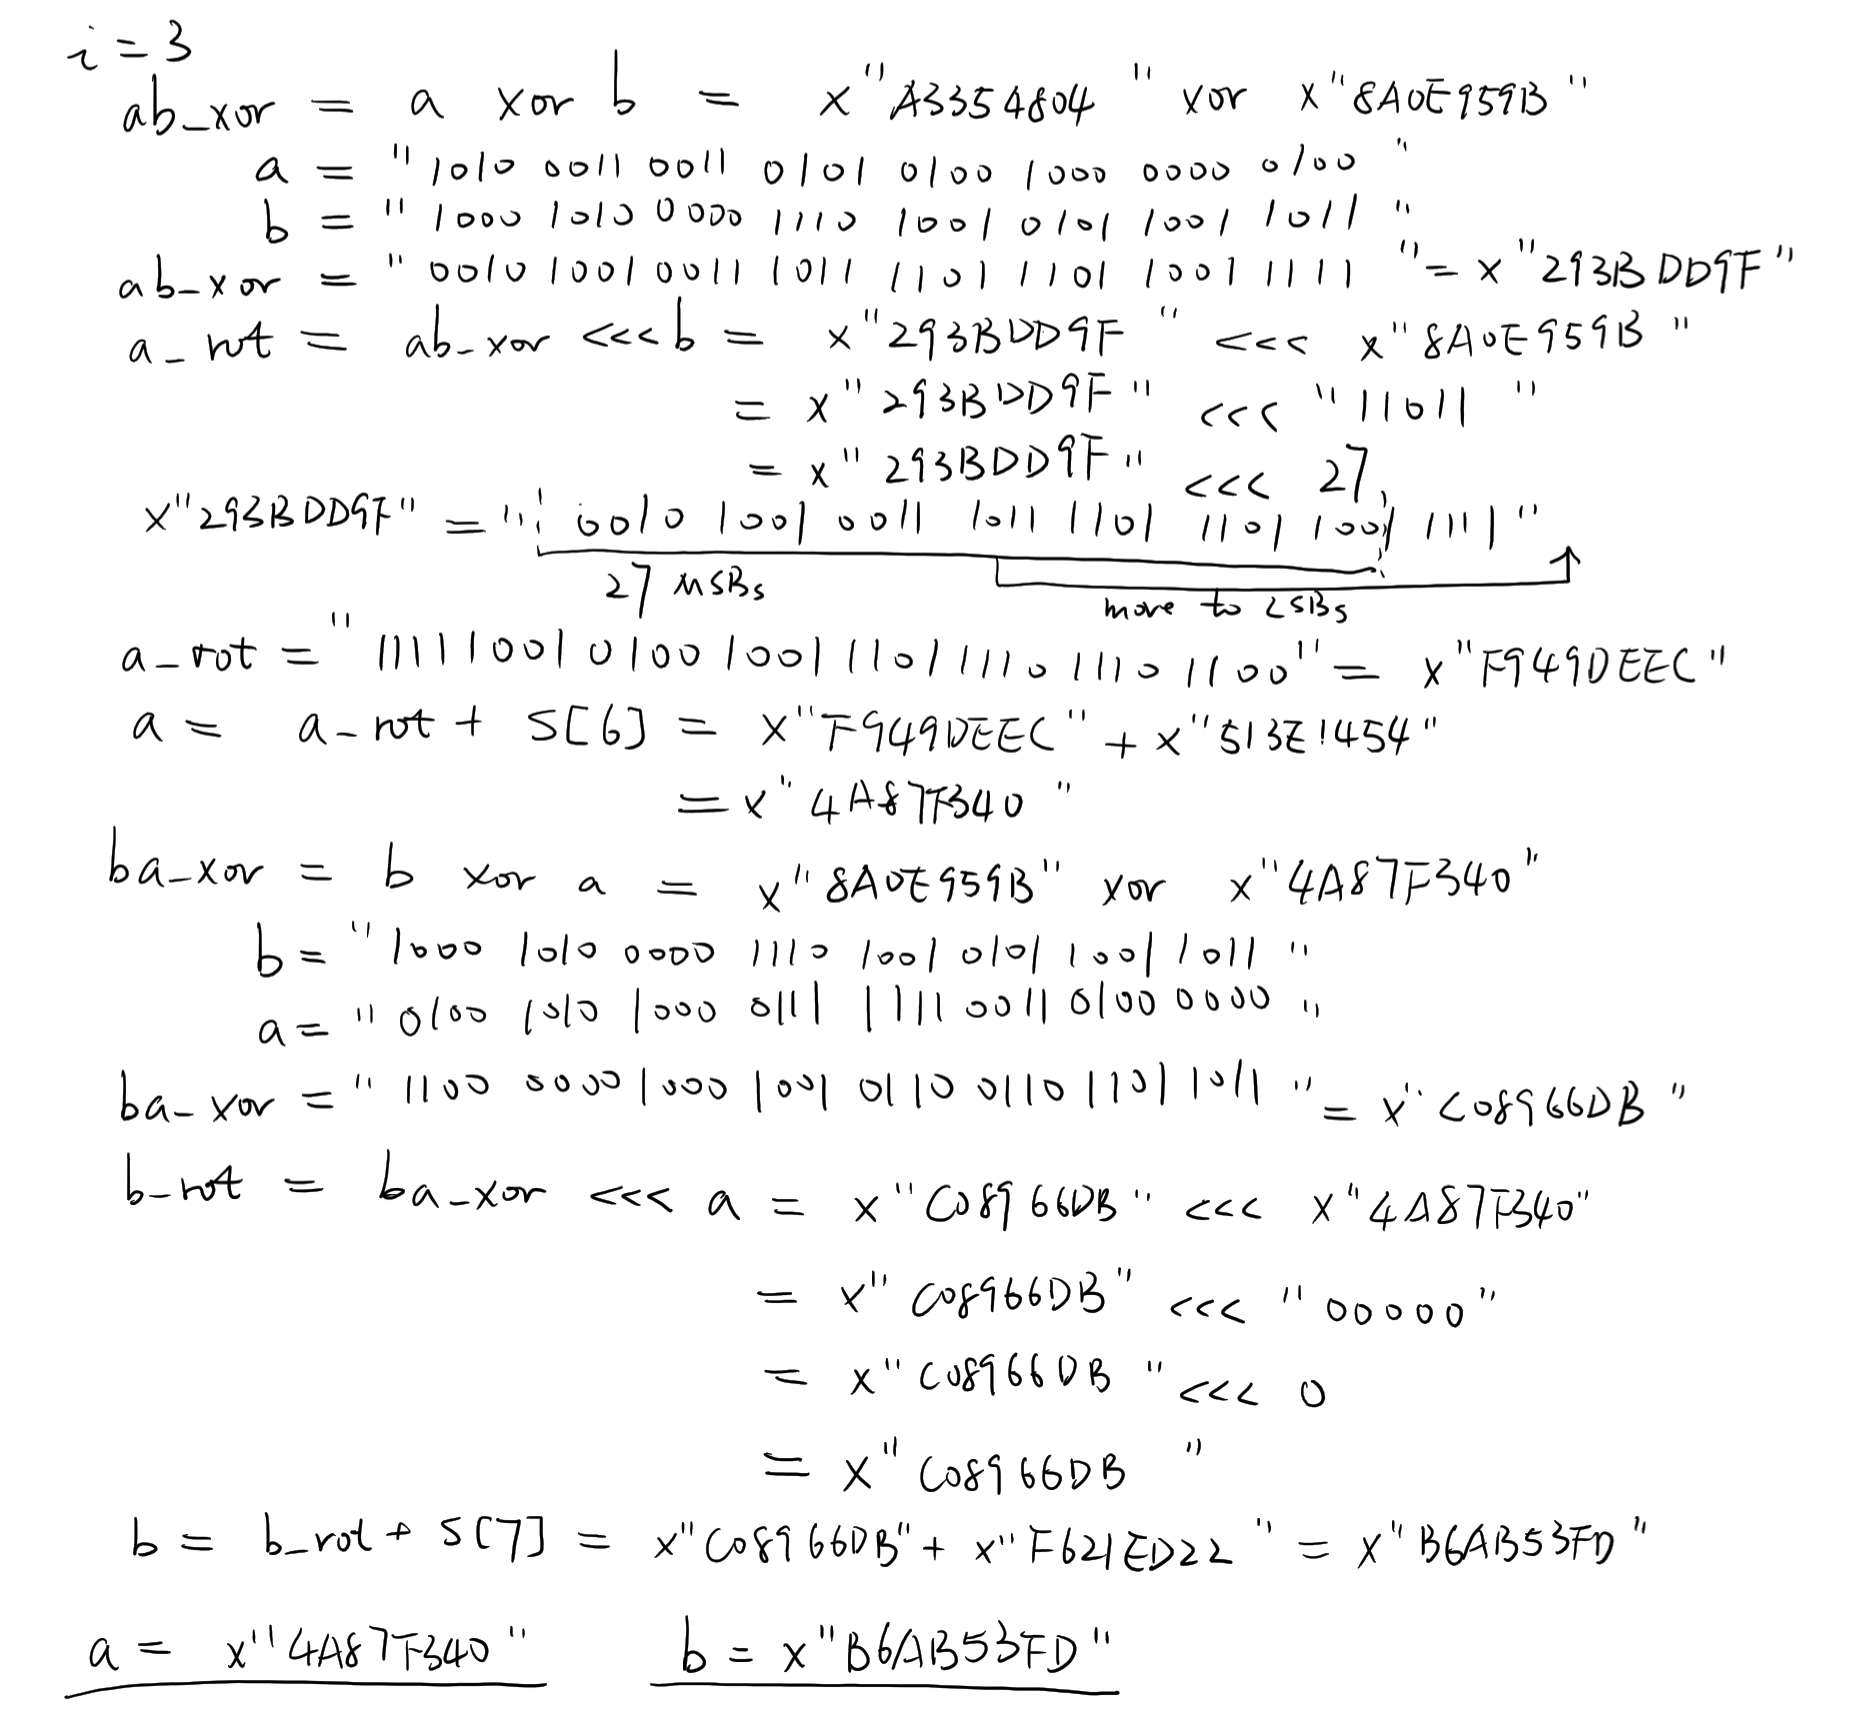 i = 3
ab_xor = a xor b = x"A3354804" xor x"8A0E959B"
a = "1010 0011 0011 0101 0100 1000 0000 0100"
b = "1000 1010 0000 1110 1001 0101 1001 1011"
ab_xor = "0010 1001 0011 1011 1101 1101 1001 1111" = x"293BDD9F"
a_rot = ab_xor <<< b = x"293BDD9F" <<< x"8A0E959B"
= x"293BDD9F" <<< "11011"
= x"293BDD9F" <<< 27
x"293BDD9F" = "0010 1001 0011 1011 1101 1101 1001 1111"
27 MSBs
move to LSBs
a_rot = "1111 1001 0100 1001 1101 1110 1110 1100" = x"F949DEEC"
a = a_rot + S[6] = x"F949DEEC" + x"513E1454"
= x"4A87F340"
ba_xor = b xor a = x"8A0E959B" xor x"4A87F340"
b = "1000 1010 0000 1110 1001 0101 1001 1011"
a = "0100 1010 1000 0111 1111 0011 0100 0000"
ba_xor = "1100 0000 1000 1001 0110 0110 1101 1011" = x"C08966DB"
b_rot = ba_xor <<< a = x"C08966DB" <<< x"4A87F340"
= x"C08966DB" <<< "00000"
= x"C08966DB" <<< 0
= x"C08966DB"
b = b_rot + S[7] = x"C08966DB" + x"F621ED22" = x"B6AB53FD"
a = x"4A87F340" b = x"B6AB53FD"